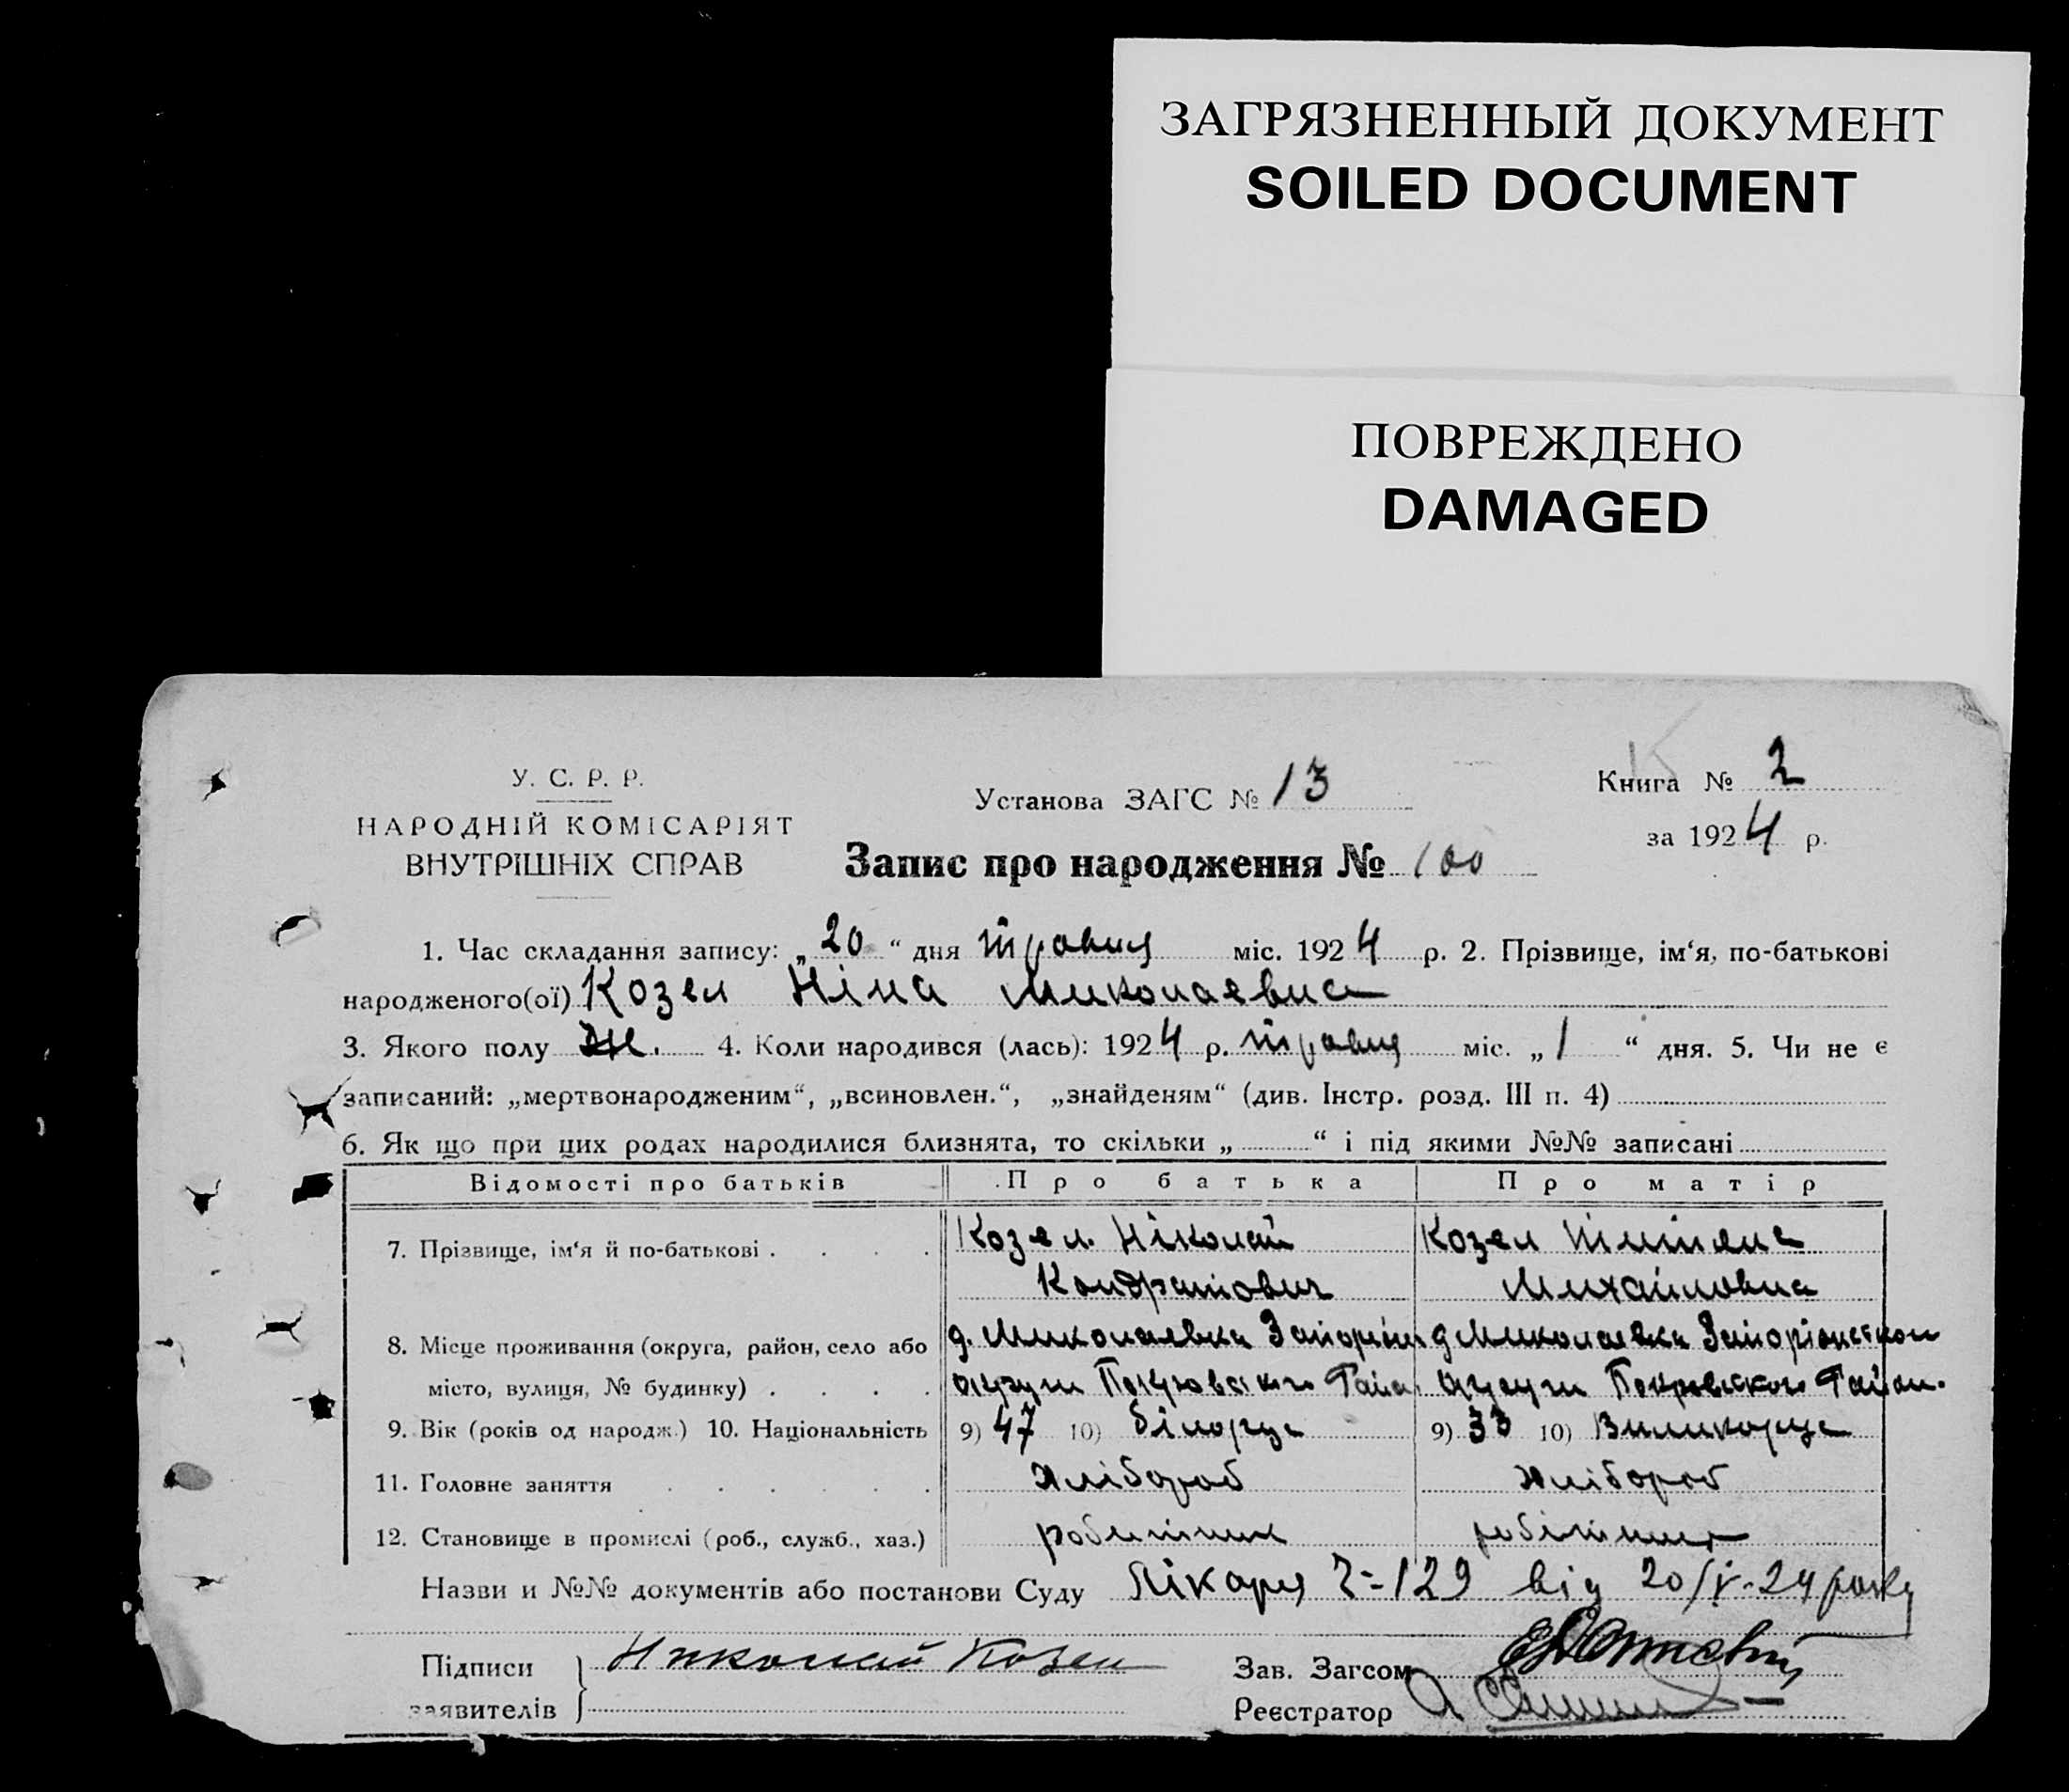 ЗАГРЯЗНЕННЫЙ ДОКУМЕНТ
SOILED DOCUMENT
ПОВРЕЖДЕНО
DAMAGED
У. С. Р. Р.
НАРОДНІЙ КОМІСАРІЯТ
ВНУТРІШНІХ СПРАВ
Установа ЗАГС № 13
Книга № 2
за 1924 р.
Запис про народження № 100
1. Час складання запису: „20“ дня травня міс. 1924 р. 2. Прізвище, ім‘я, по-батькові
народженого(ої) Козел Ніна Миколаевна
3. Якого полу Ж. 4. Коли народився (лась): 1924 р. травня міс. „1“ дня. 5. Чи не є
записаний: „мертвонародженим“, „всиновлен.“, „знайденям“ (див. Інстр. розд. III п. 4)
6. Як що при цих родах народилися близнята, то скільки „ “ і під якими №№ записані
Відомості про батьків Про батька Про матір
7. Прізвище, ім‘я й по-батькові . . . . Козел Ніколай Козел
Кондратович Михайловна
8. Місце проживання (округа, район, село або д. Миколаевка д. Миколаевка
місто, вулиця, № будинку) . . . . округи округи Покровського Район.
9. Вік (років од народж.) 10. Національність 9) 47 10) 9) 33 10)
11. Головне заняття . . . . . . Хлібороб Хлібороб
12. Становище в промислі (роб., служб., хаз.) робітник
Назви и №№ документів або постанови Суду Лікаря 129 від 20/V-24 року
Підписи Николай Козел Зав. Загсом
заявителів Реєстратор